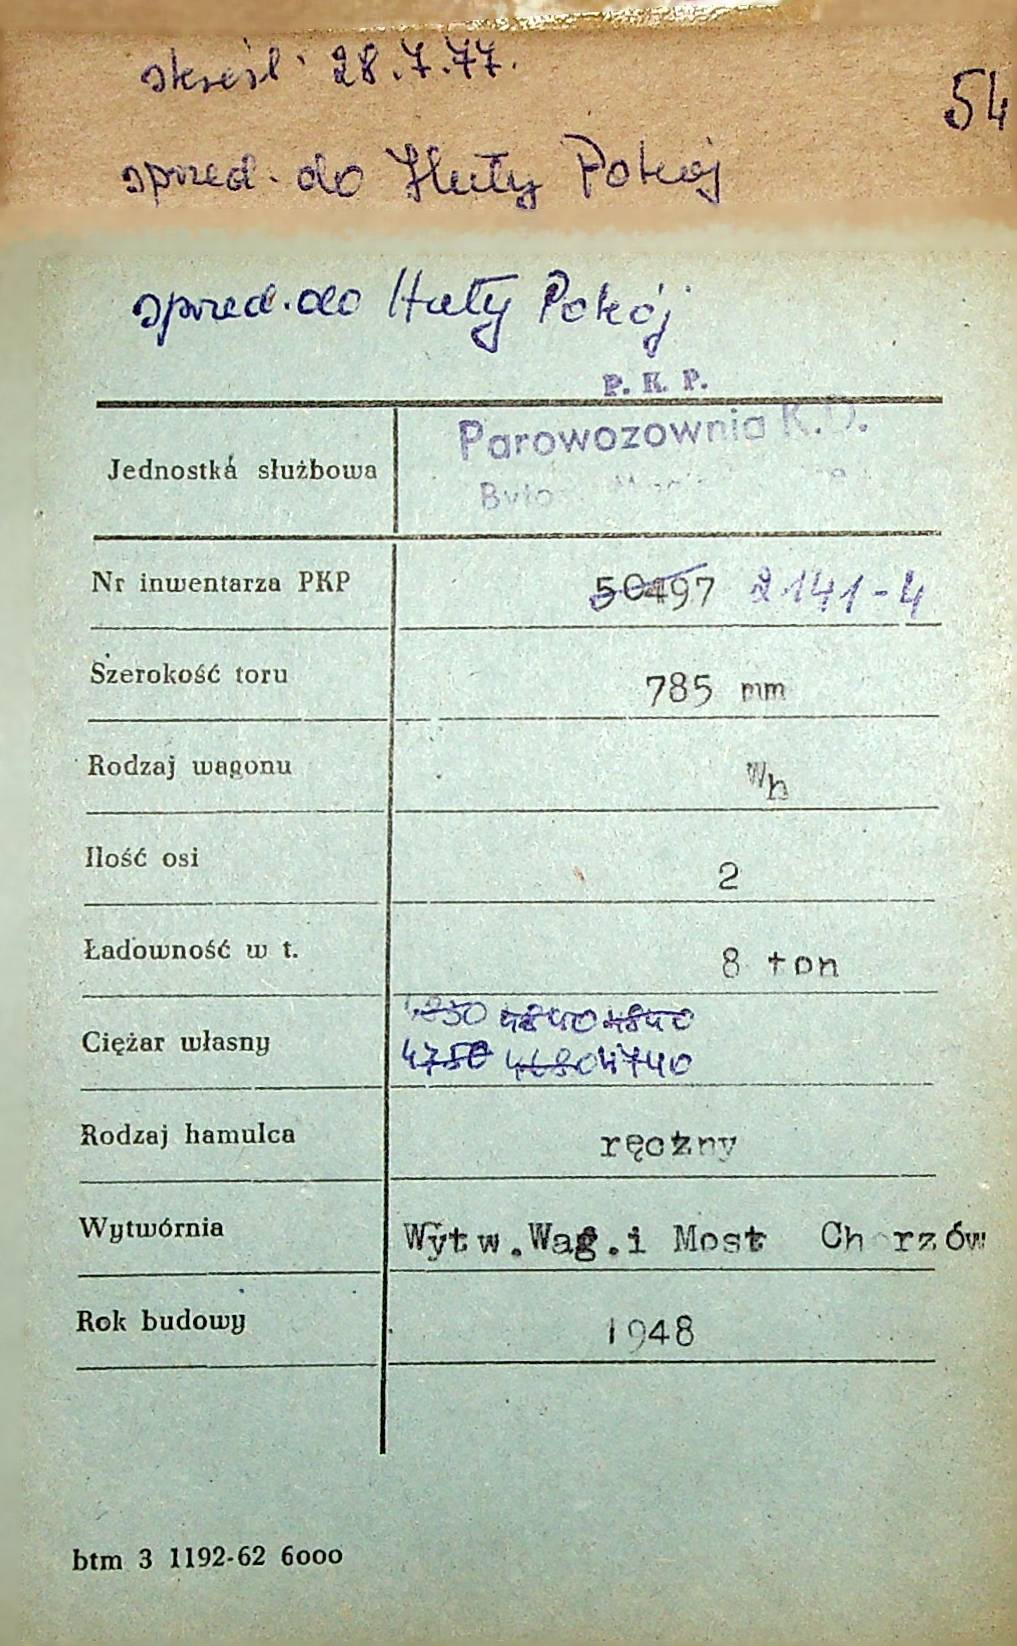 skreśl. 28.7.77.
54
sprzed. do Huty Pokój
sprzed. do Huty Pokój
P. K. P.
Parowozownia K.D.
Jednostka służbowa
Nr inwentarza PKP 50497 2141-4
Szerokość toru 785 mm
Rodzaj wagonu Wh
Ilość osi 2
Ładowność w t. 8 ton
4840 4840
Ciężar własny
4750 4680 4740
Rodzaj hamulca ręczny
Wytwórnia Wytw.Wag.i Most Chorzów
Rok budowy 1948
btm 3 1192-62 6000